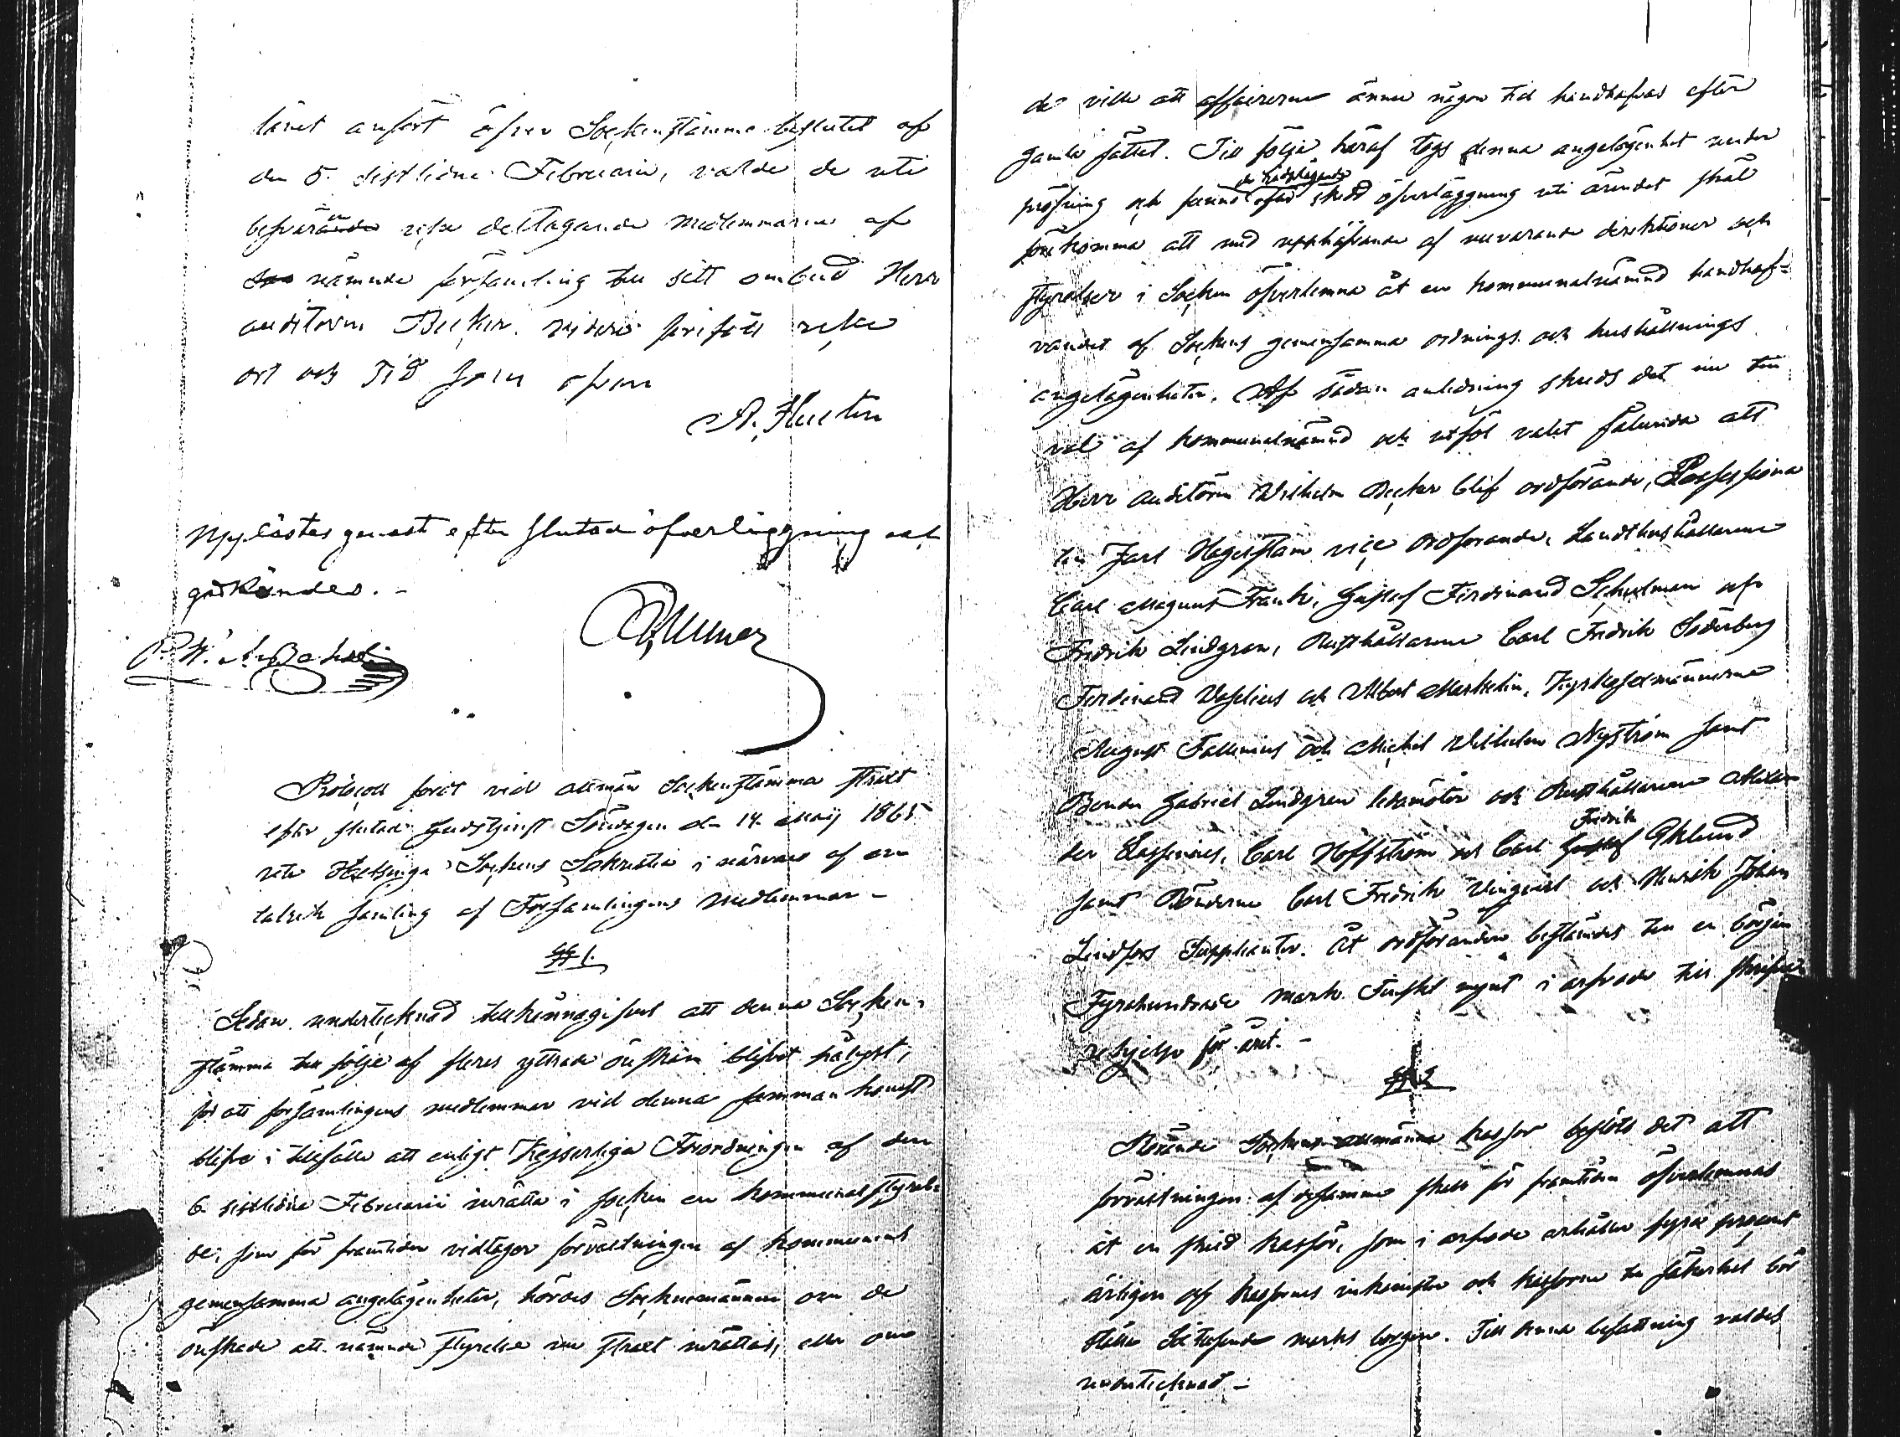 länet anfört öfver Sockenstämmobeslutet af
den 5 sistlidne Februarii, valde de uti
besvären deltagande medlemmarne af
nämnde församling till sitt ombud Herr
auditorn Becker. vidare
ort och tid som ofvan
Upplästes genast efter slutad öfverläggning och
godkändes. -
Protocoll fördt vid allmän Sockenstämma straxt
efter slutad Gudstjenst Söndagen den 14 Maij 1865
uti Helsinge Sockens Sakristia i närvaro af en
talrik samling af Församlingens medlemmar -
§ 1.
Sedan undertecknad tillkännagifvit att denna Socken-
stämma till följe af fleres yttrade önskan blifvit pålyst,
för att församlingens medlemmar vid denna sammankomst
blifva i tillfälle att enligt Kejserliga Förordningen af den
6 sistlidne Februarii inrätta i socken en kommunalstyrel-
se, som för framtiden vidtager förvaltningen af kommunens
gemensamma angelägenheter, hördes Sockenemännen om de
önskade att nämnde styrelse nu straxt inrättas, eller om
de ville att affairerne ännu någon tid handhafvas efter
gamla sättet. Till följe häraf togs denna angelägenhet under
pröfning och funno de rådplägande efter skedd öfverläggning uti ärendet skäl
förekomma att med upphäfvande af nuvarande direktioner och
styrelser i Socken öfverlemna åt en kommunalnämnd handhaf-
vandet af Sockens gemensamma ordnings och hushållnings
angelägenheter. Af sådan anledning skreds det nu till
val af kommunalnämnd och utföll valet sålunda att
Herr auditorn Wilhelm Becker blef ordförande, Possessiona
ten Jarl Hagelstam vice ordförande, Landthushållarene
Carl Magnus Frank, Gustaf Ferdinand Schulman och
Fredrik Lindgren, Rusthållarene Carl Fredrik Söderberg
Ferdinand Vaselius och Albert Markelin, Kyrkosexmännerna
August Fallenius och Michel Wilhelm Nyström samt
Bonden Gabriel Lindgren ledamöter och Rusthållarene
Carl Hoffström och Carl Fredrik Eklund
samt Bönderne Carl Fredrik Vingqvist och Henrik Johan
Lindfors Suppleanter. Åt ordföranden bestämdes till en början
Fyrahundrade mark Finskt mynt i arfvode till
för året. -
§ 2
Rörande Sockens kassor beslöts det att
förvaltningen af desamma skall för framtiden öfverlemnas
åt en skild kassör, som i arfvode erhåller fyra procent
årligen af kassornas inkomster och kassören till säkerhet bör
ställa marks borgen. Till denna befattning valdes
undertecknad -